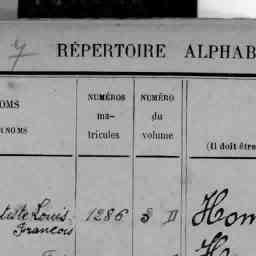 7 RÉPERTOIRE ALPHAB
OMS
NOMS
NUMÉROS
ma-
tricules
NUMÉRO
du
volume
(Il doit être
tiste Louis
François
1286
3 II
Hom